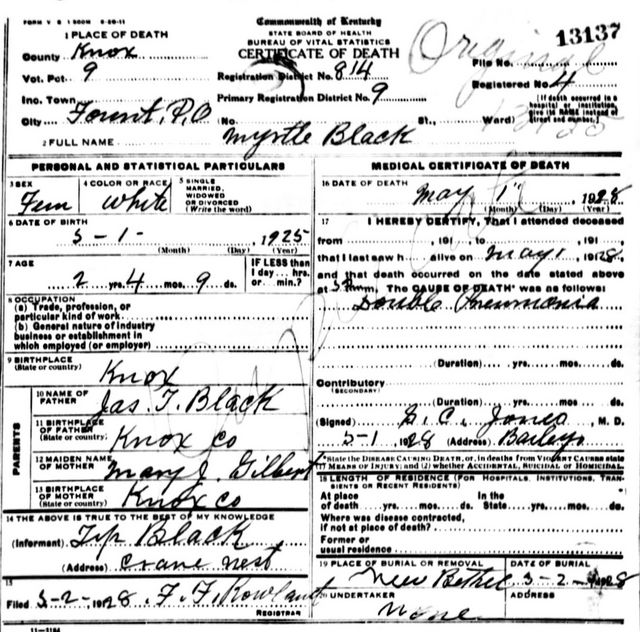 FORM V S 1 500M 6-20-11
Commonwealth of Kentucky
STATE BOARD OF HEALTH
BUREAU OF VITAL STATISTICS
CERTIFICATE OF DEATH
Original
13137
1 PLACE OF DEATH
County Knox
File No.
Vot. Pct 9
Registration District No. 814
Registered No. 4
Inc. Town
Primary Registration District No. 9
City P.O (No St., Ward)
(If death occurred in a hospital or institution, give its NAME instead of street and number.)
2 FULL NAME Myrtle Black
PERSONAL AND STATISTICAL PARTICULARS
3 SEX Fem
4 COLOR OR RACE White
5 SINGLE MARRIED, WIDOWED OR DIVORCED (Write the word)
6 DATE OF BIRTH
5 - 1 - 1925
(Month) (Day) (Year)
7 AGE
2 yrs. 4 mos. 9 ds.
IF LESS than 1 day ... hrs. or min.?
8 OCCUPATION
(a) Trade, profession, or particular kind of work
(b) General nature of industry business or establishment in which employed (or employer)
9 BIRTHPLACE (State or country) Knox
PARENTS
10 NAME OF FATHER Jas. T. Black
11 BIRTHPLACE OF FATHER (State or country) Knox co
12 MAIDEN NAME OF MOTHER Mary J. Gilbert
13 BIRTHPLACE OF MOTHER (State or country) Knox co
14 THE ABOVE IS TRUE TO THE BEST OF MY KNOWLEDGE
(Informant) Black
(Address) Crane Nest
15
Filed 5-2-, 1928 F. F. Rowland
REGISTRAR
11-3184
MEDICAL CERTIFICATE OF DEATH
16 DATE OF DEATH May 1, 1928
(Month) (Day) (Year)
17 I HEREBY CERTIFY, That I attended deceased
from , 191 , to , 191 ,
that I last saw h alive on May 1, 1928,
and that death occurred on the date stated above
at m. The CAUSE OF DEATH* was as follows:
Double Pneumonia
(Duration) yrs. mos. ds.
Contributory
(SECONDARY)
(Duration) yrs. mos. ds.
(Signed) G. C. Jones, M. D.
5-1 1928 (Address)
*State the DISEASE CAUSING DEATH, or, in deaths from VIOLENT CAUSES state MEANS OF INJURY; and (2) whether ACCIDENTAL, SUICIDAL or HOMICIDAL.
18 LENGTH OF RESIDENCE (FOR HOSPITALS, INSTITUTIONS, TRANSIENTS OR RECENT RESIDENTS)
At place of death yrs. mos. ds. In the State yrs. mos. ds.
Where was disease contracted, if not at place of death?
Former or usual residence
19 PLACE OF BURIAL OR REMOVAL New Bethel
DATE OF BURIAL 5-2-1928
20 UNDERTAKER None
ADDRESS